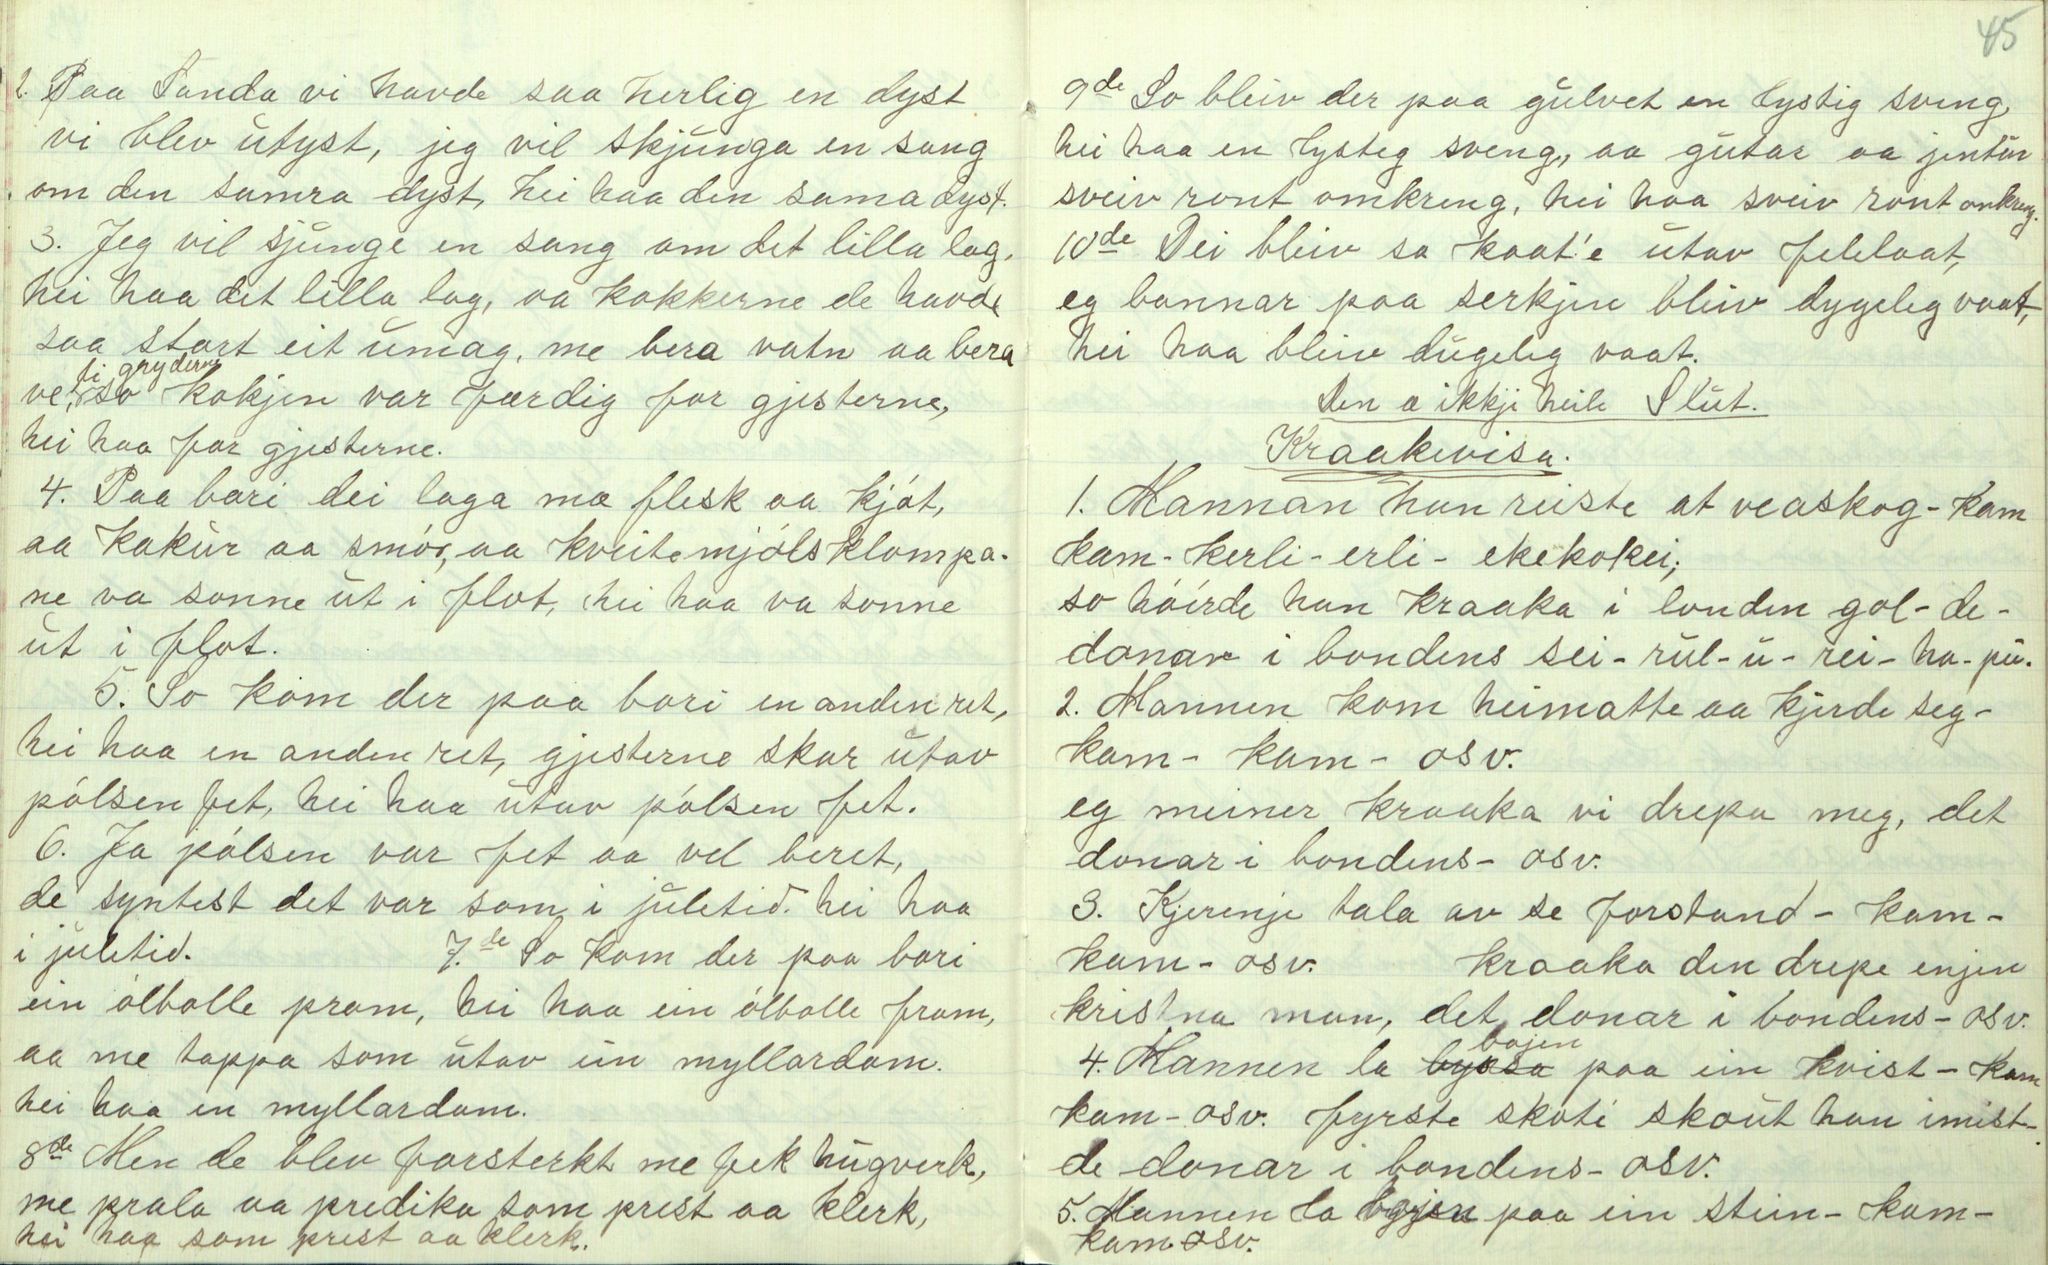 2. Paa Sanda vi havde saa herlig en dyst
vi blev ütyst, jeg vil skjünga en sang
om den samra dyst, hei haa den sama dyst.
3. Jeg vil sjünge en sang om det lilla lag,
hei haa det lilla lag, aa kokkerne de havde
saa stort eit ümag, me bera vatn aa bera
ve, ti gryderne so kokjen var færdig for gjesterne,
hei haa for gjesterne.
4. Paa bori dei laga mæ flesk aa kjót,
aa kakür aa smór, aa kveitemjólsklompa-
ne va sonne üt i flot, hei haa va sonne
üt i flot.
5. So kom der paa bori en anden ret,
hei haa en anden ret, gjesterne skar ütav
pólsen fet, hei haa ütav pólsen fet.
6. Ja pólsen var fet aa vel beret,
de syntest det var som i jületid. hei haa
i jületid. 7.de So kom der paa bori
ein ólbolle pram, hei haa ein ólbolle fram,
aa me tappa som ütav ein myllardam.
hei haa en myllardam.
8de Men de blev forsterkt me fek hügverk,
me prala aa predika som prest aa klerk,
hei haa som prest aa klerk.
45
9de So bleiv der paa gülvet en lystig sving,
hei haa en lysteg sveng, aa gütar aa jentür
sveiv ront omkreng, hei haa sveiv ront onkreng.
10de Dei bleiv sa kaat'e ütav felelaat,
eg bannar paa serkjen bleiv dygeleg vaat,
hei haa bleiv dügeleg vaat.
Den æ ikkji heile Slüt.
Kraakevisa.
1. Mannan han reiste at veaskog - kam
kam - kerli - erli - ekekokei;
so hóirde han kraaka i londen gol - de -
donar i bondens sei - rül - ü - rei - ha - pü.
2. Mannen kom heimatte aa kjerde seg -
kam - kam - osv.
eg meiner kraaka vi drepa meg, det
donar i bondens - osv.
3. Kjerenje tala av se forstand - kam -
kam - osv. kraaka den drepe enjen
kristna man, det donar i bondens - osv.
4. Mannen la byssa bojen paa ein kvist - kam
kam - osv. fyrste skoti skoüt han imist -
de donar i bondens - osv.
5. Mannen la bojen paa ein stein - kam -
kam osv.